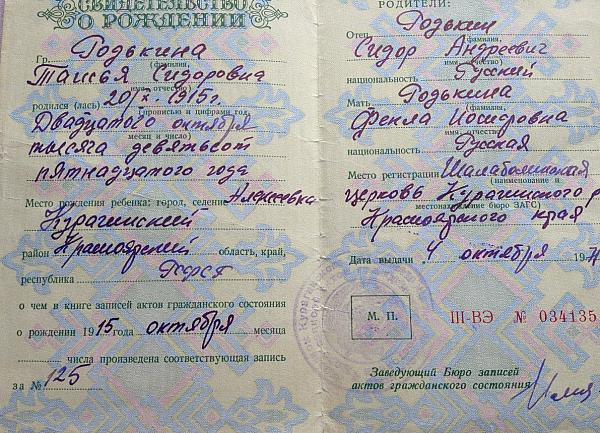 СВИДЕТЕЛЬСТВО
О РОЖДЕНИИ
Гр. Годькина
(фамилия,
Таисья Сидоровна
имя, отчество)
родился (лась) 20/X-1915г.
(прописью и цифрами год,
Двадцатого октября
месяц и число)
тысяча девятьсот
пятнадцатого года
Место рождения ребенка: город, селение Алексеевка
Курагинский
район Красноярский область, край,
республика РСФСР
о чем в книге записей актов гражданского состояния
о рождении 1915 года октября месяца
числа произведена соответствующая запись
за № 125
РОДИТЕЛИ:
Отец Годькин
(фамилия,
Сидор Андреевич
имя, отчество)
национальность Русский
Мать Годькина
(фамилия,
Фекла
имя, отчество)
национальность Русская
Место регистрации Шалаболинская
(наименование и
церковь Курагинского р
местонахождение бюро ЗАГС)
Красноярского края
Дата выдачи 4 октября 197
М. П.
III-ВЭ № 034135
Заведующий Бюро записей
актов гражданского состояния